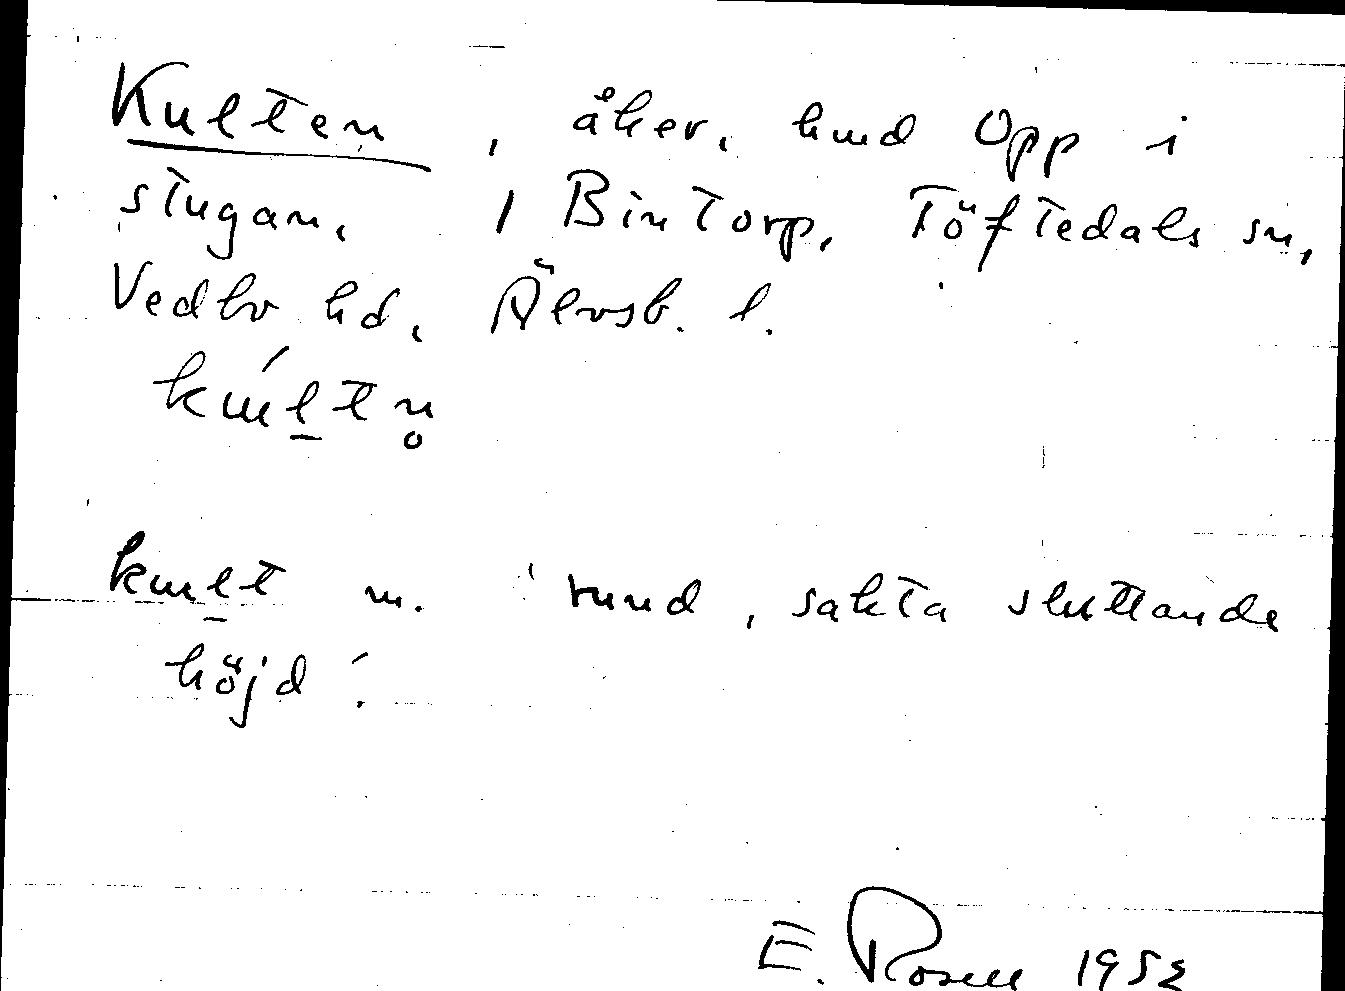 Kulten, åker, hmd Opp i
stugan, 1 Bintorp, Töftedals sn,
Vedbo hd, Älvsb. l.
kúl̠tn̥
kul̠t m. 'rund, sakta sluttande
höjd'.
E. Rosell 1952